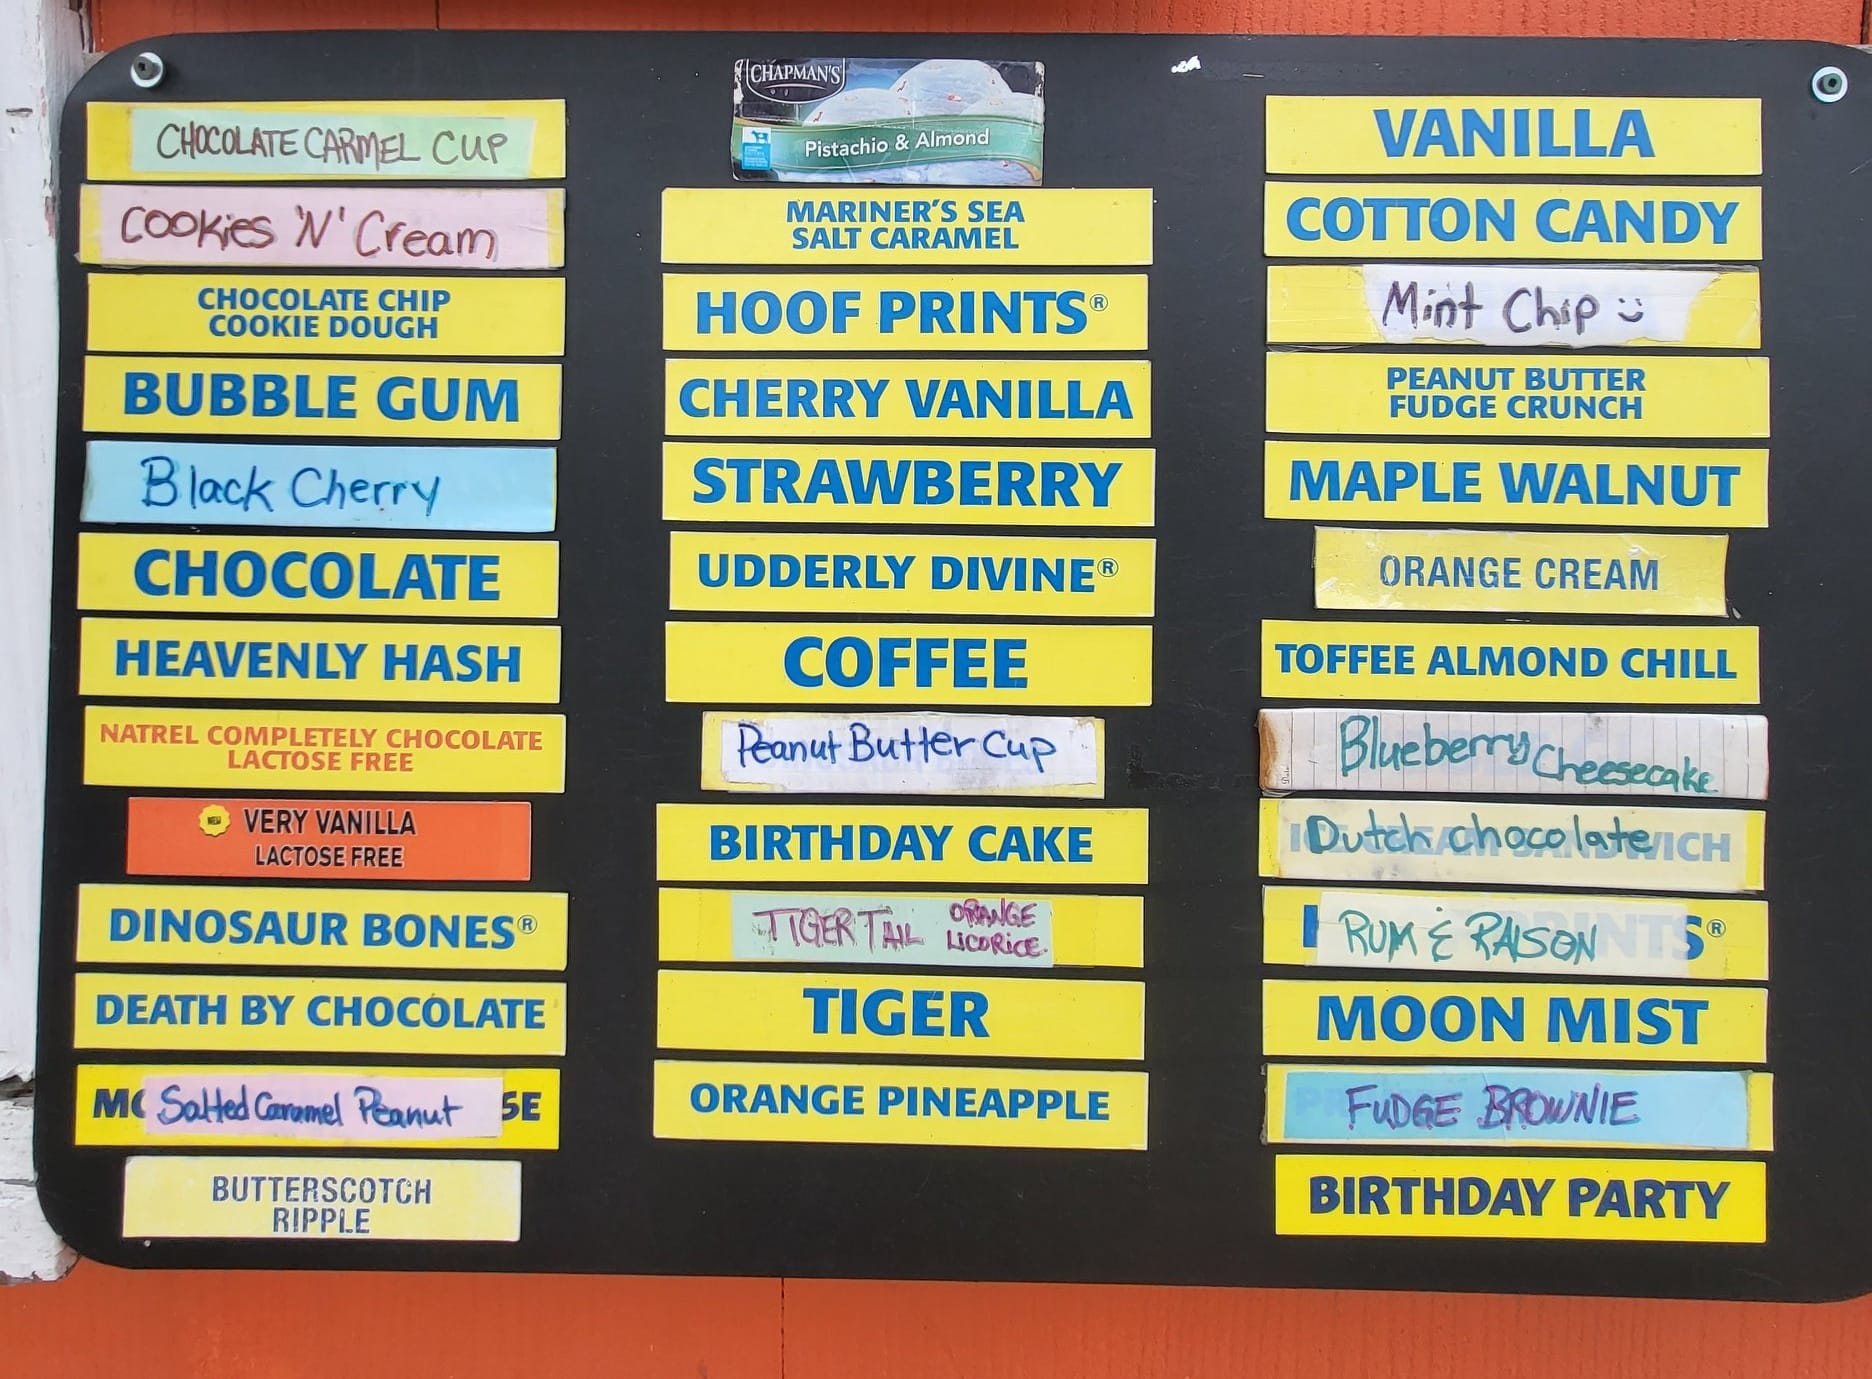 CHOCOLATE CARMEL CUP
Cookies 'N' Cream
CHOCOLATE CHIP
COOKIE DOUGH
BUBBLE GUM
Black Cherry
CHOCOLATE
HEAVENLY HASH
NATREL COMPLETELY CHOCOLATE
LACTOSE FREE
NEW VERY VANILLA
LACTOSE FREE
DINOSAUR BONES®
DEATH BY CHOCOLATE
MO Salted Caramel Peanut SE
BUTTERSCOTCH
RIPPLE
CHAPMAN'S
Pistachio & Almond
MARINER'S SEA
SALT CARAMEL
HOOF PRINTS®
CHERRY VANILLA
STRAWBERRY
UDDERLY DIVINE®
COFFEE
Peanut Butter Cup
BIRTHDAY CAKE
TIGER TAIL ORANGE
LICORICE
TIGER
ORANGE PINEAPPLE
VANILLA
COTTON CANDY
Mint Chip
PEANUT BUTTER
FUDGE CRUNCH
MAPLE WALNUT
ORANGE CREAM
TOFFEE ALMOND CHILL
Blueberry Cheesecake
Dutch chocolate
RUM & RAISON
MOON MIST
FUDGE BROWNIE
BIRTHDAY PARTY